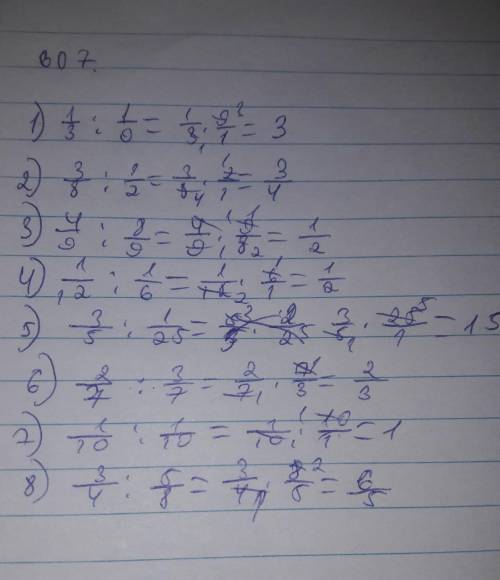 807.
1) 1/3 : 1/9 = 1/3 · 9/1 = 3
2) 3/8 : 1/2 = 3/8 · 2/1 = 3/4
3) 4/9 : 8/9 = 4/9 · 9/8 = 1/2
4) 1/12 : 1/6 = 1/12 · 6/1 = 1/2
5) 3/5 : 1/25 = 3/5 · 25/1 = 15
6) 2/7 : 3/7 = 2/7 · 7/3 = 2/3
7) 1/10 : 1/10 = 1/10 · 10/1 = 1
8) 3/4 : 5/8 = 3/4 · 8/5 = 6/5